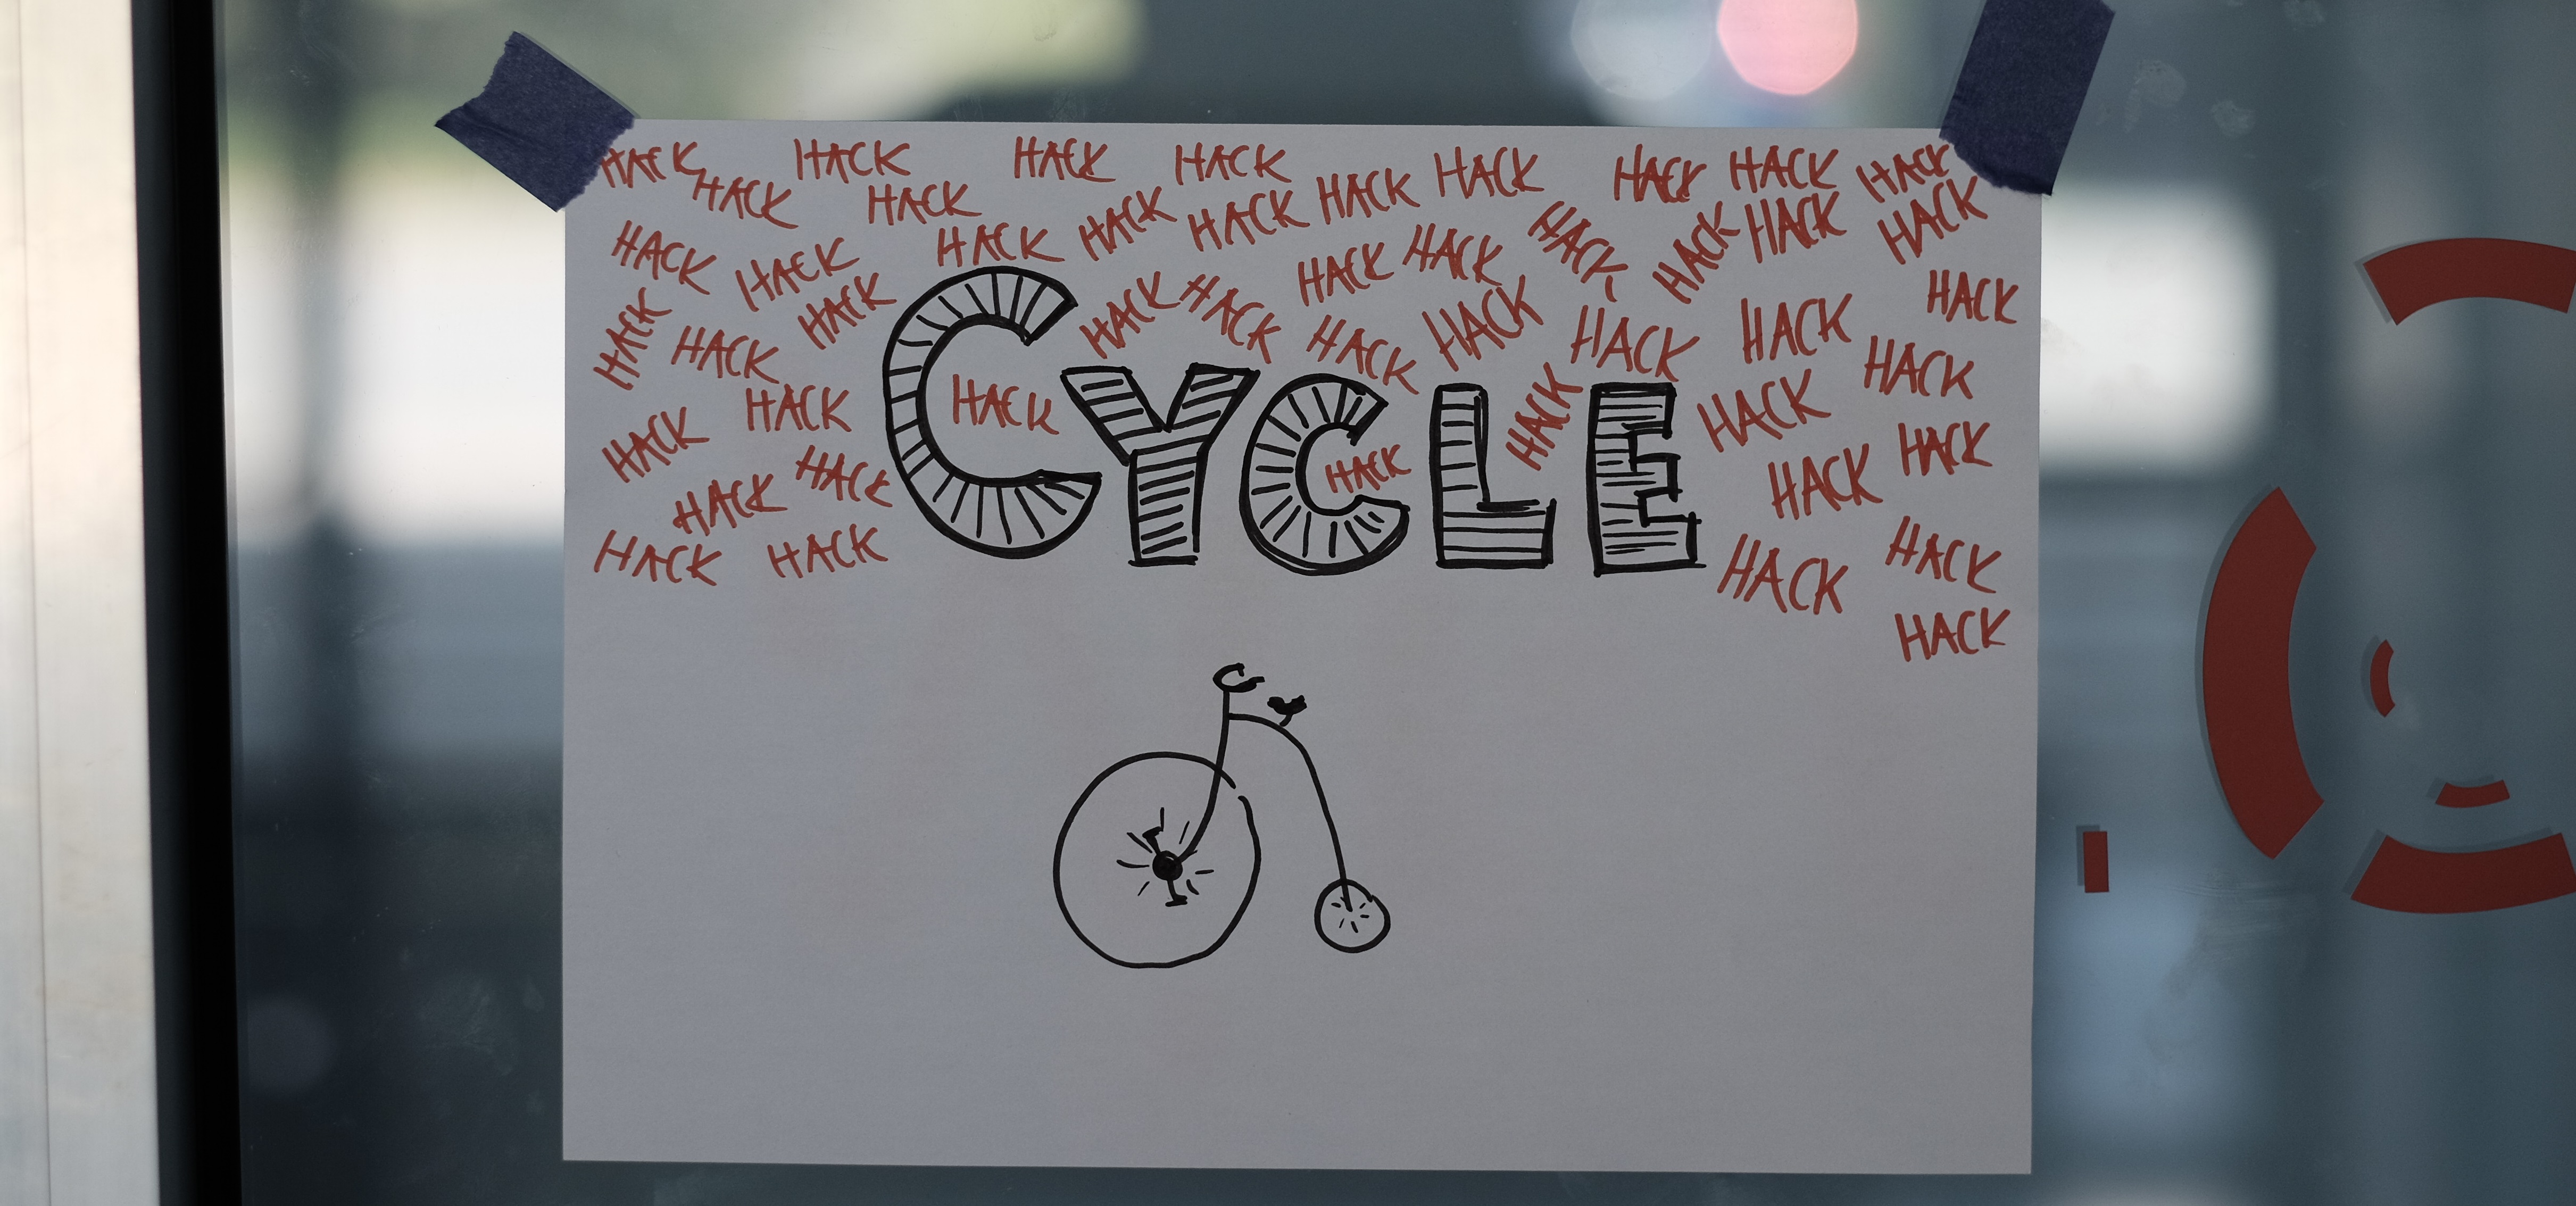 HACK HACK HACK HACK HACK HACK HACK HACK
HACK HACK HACK HACK HACK HACK HACK
HACK HACK HACK HACK HACK HACK HACK
HACK HACK HACK HACK HACK
HACK HACK HACK HACK HACK HACK
HACK HACK HACK HACK
CYCLE
HACK HACK HACK
HACK HACK HACK
HACK HACK HACK HACK
HACK